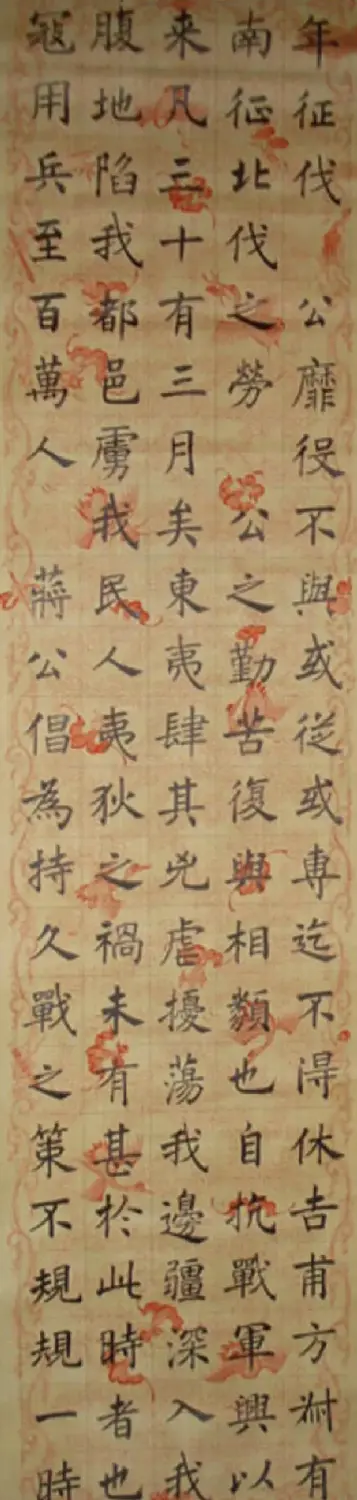 年征伐　公靡役不與或從或専迄不得休吉甫方叔有
南征北伐之勞　公之勤苦復與相類也自抗戰軍興以
来凡三十有三月矣東夷肆其兇虐擾蕩我邊疆深入我
腹地陷我都邑虜我民人夷狄之禍未有甚於此時者也
寇用兵至百萬人　蔣公倡為持久戰之策不規規一時